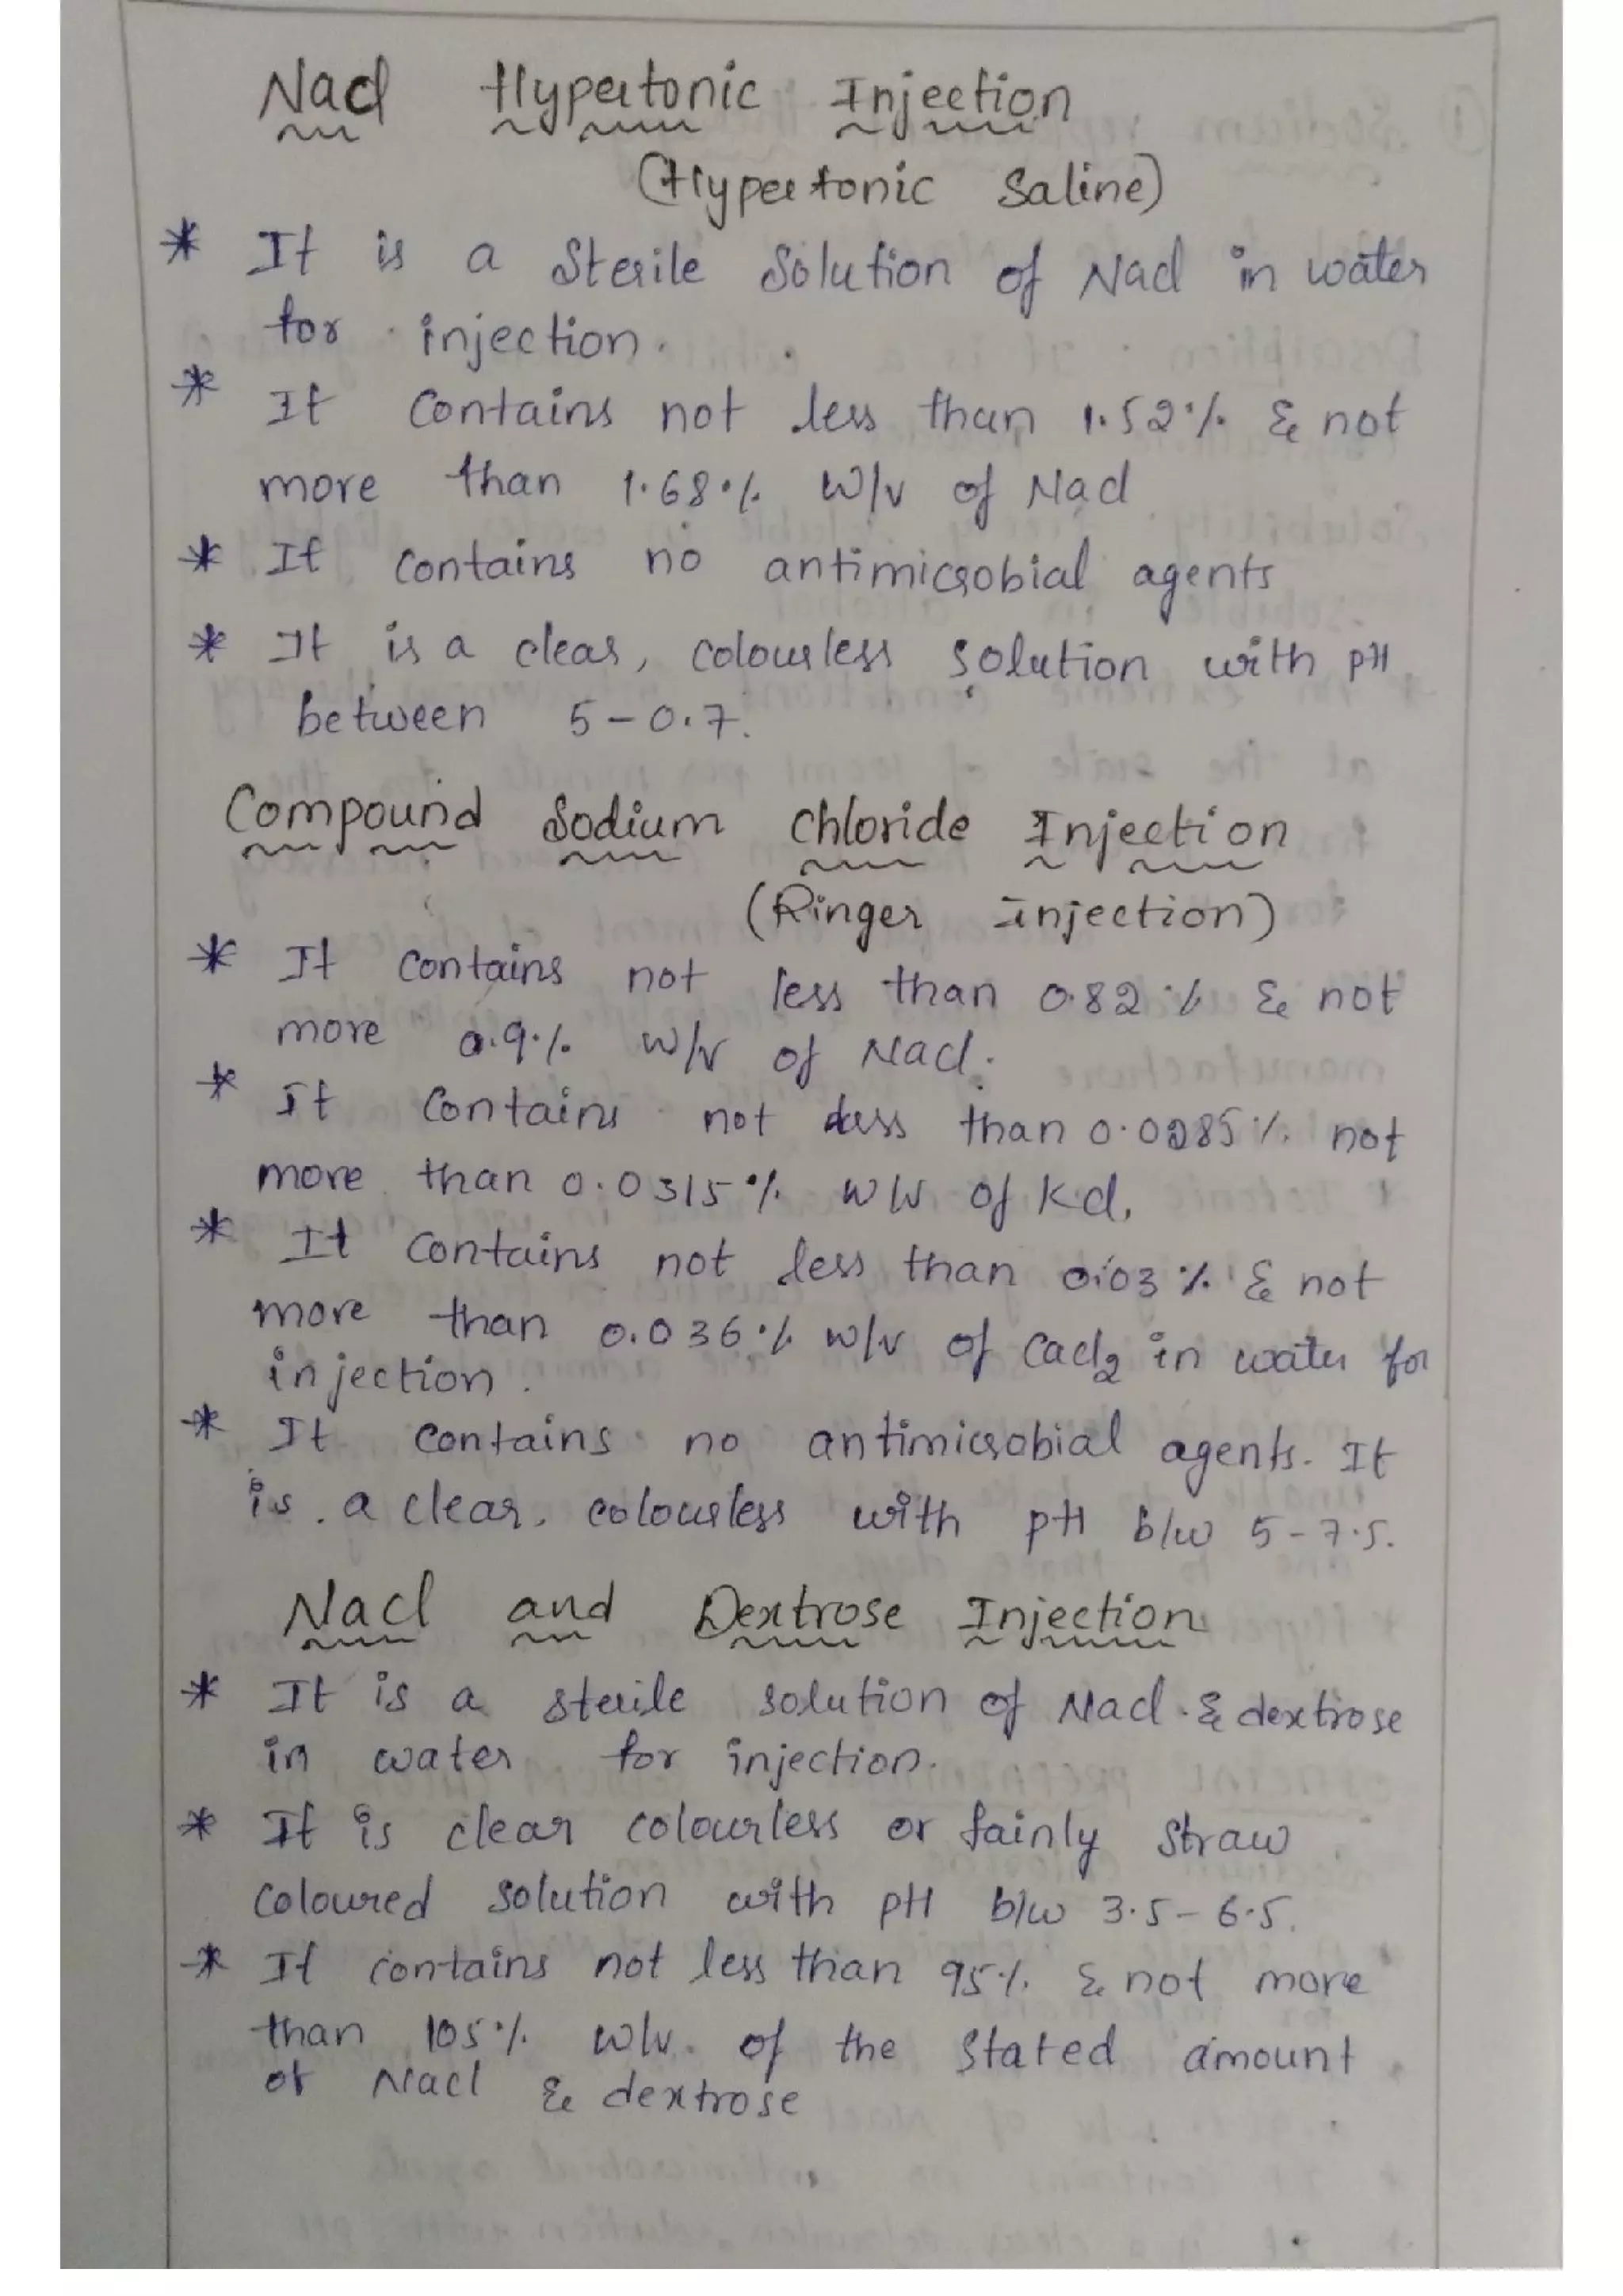 NaCl Hypertonic Injection
(Hypertonic Saline)
* It is a Sterile Solution of NaCl in water
for injection.
* It Contains not less than 1.52% & not
more than 1.68% w/v of NaCl
* It contains no antimicrobial agents
* It is a clear, colourless solution with pH
between 5-0.7.
Compound Sodium Chloride Injection
(Ringer injection)
* It contains not less than 0.82% & not
more 0.9% w/v of NaCl.
* It Contains not less than 0.0285% not
more than 0.0315% w/v of KCl.
* It Contains not less than 0.03% & not
more than 0.036% w/v of CaCl2 in water for
injection.
* It contains no antimicrobial agents. It
is a clear, colourless with pH b/w 5-7.5.
NaCl and Dextrose Injection
* It is a sterile solution of NaCl & dextrose
in water for injection.
* It is clear colourless or fainly straw
coloured solution with pH b/w 3.5-6.5.
* It contains not less than 95% & not more
than 105% w/v of the stated amount
of NaCl & dextrose